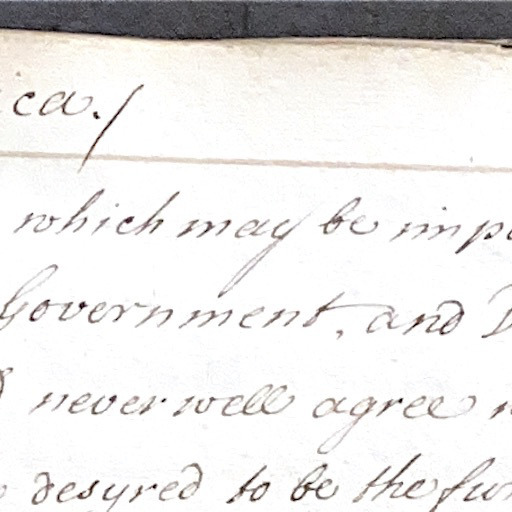 ica./
which may be imp
Government, and D
never well agree
desyred to be the fur